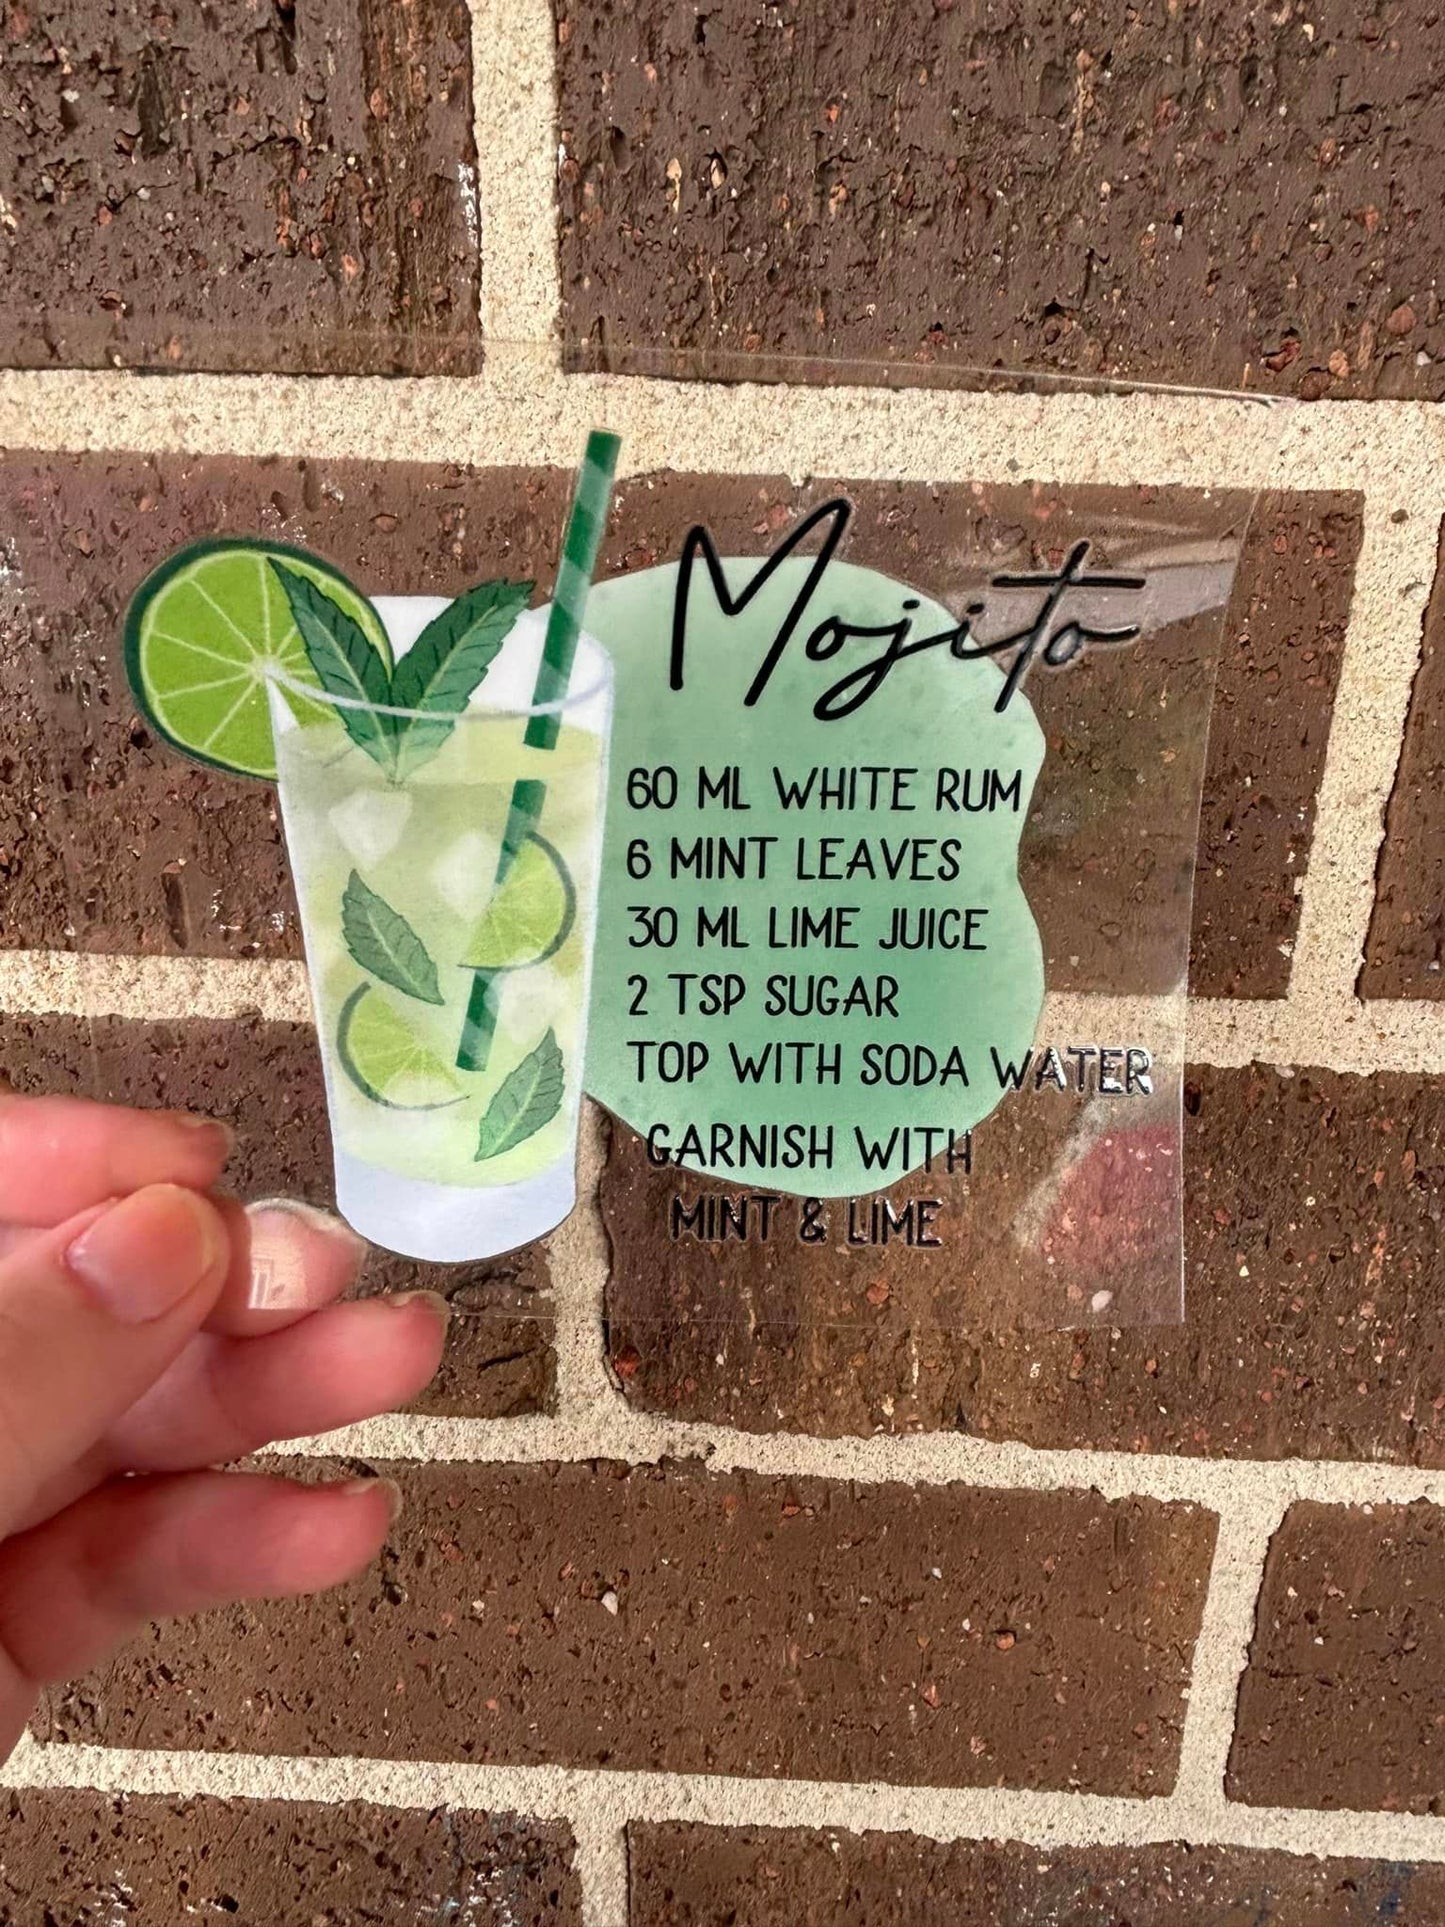 Mojito
60 ML WHITE RUM
6 MINT LEAVES
30 ML LIME JUICE
2 TSP SUGAR
TOP WITH SODA WATER
GARNISH WITH
MINT & LIME